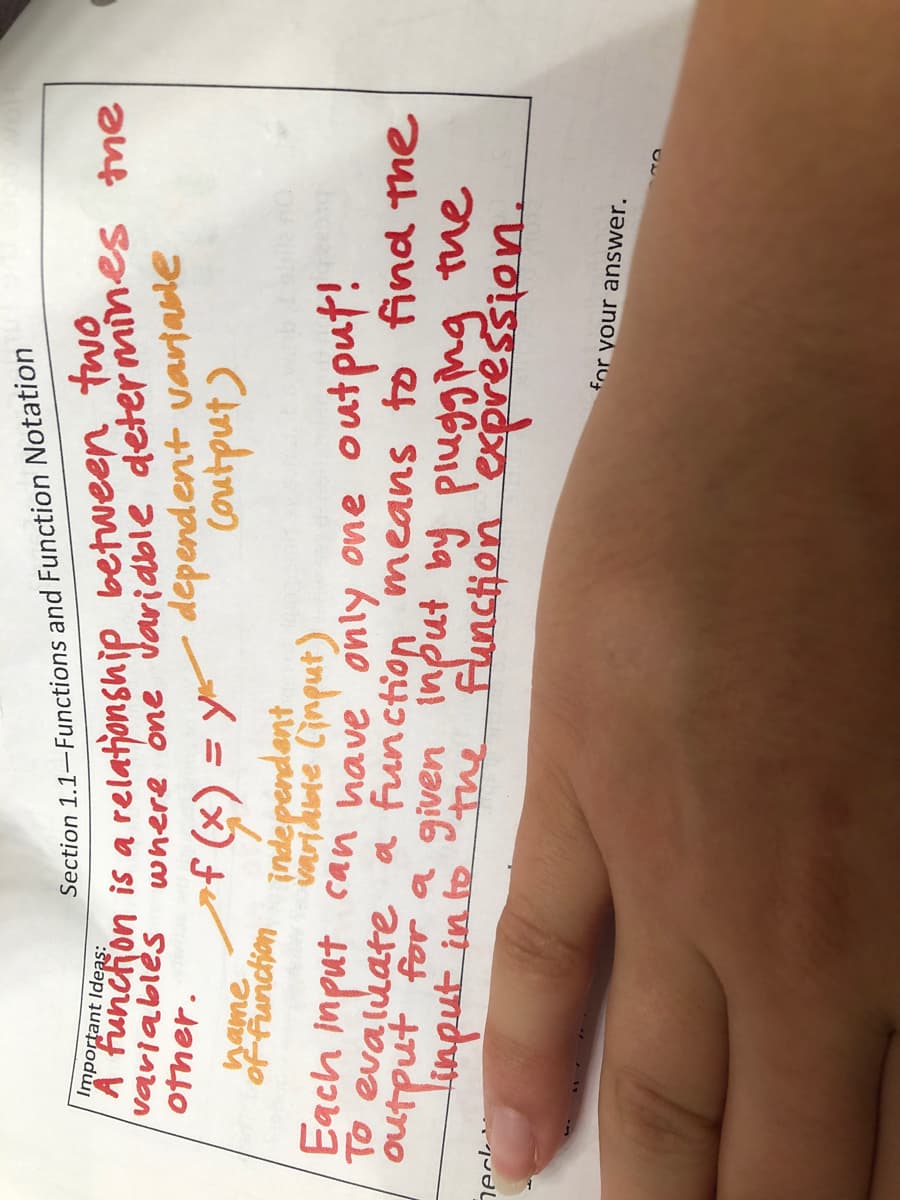 Section 1.1—Functions and Function Notation
Important Ideas:
A function is a relationship between two
variables where one variable determines the
other.
f(x) = y
dependent variable
(output)
name
of function
independent
variable (input)
Each input can have only one output!
To evaluate a function means to find the
output for a given input by plugging the
input into the function expression.
for your answer.